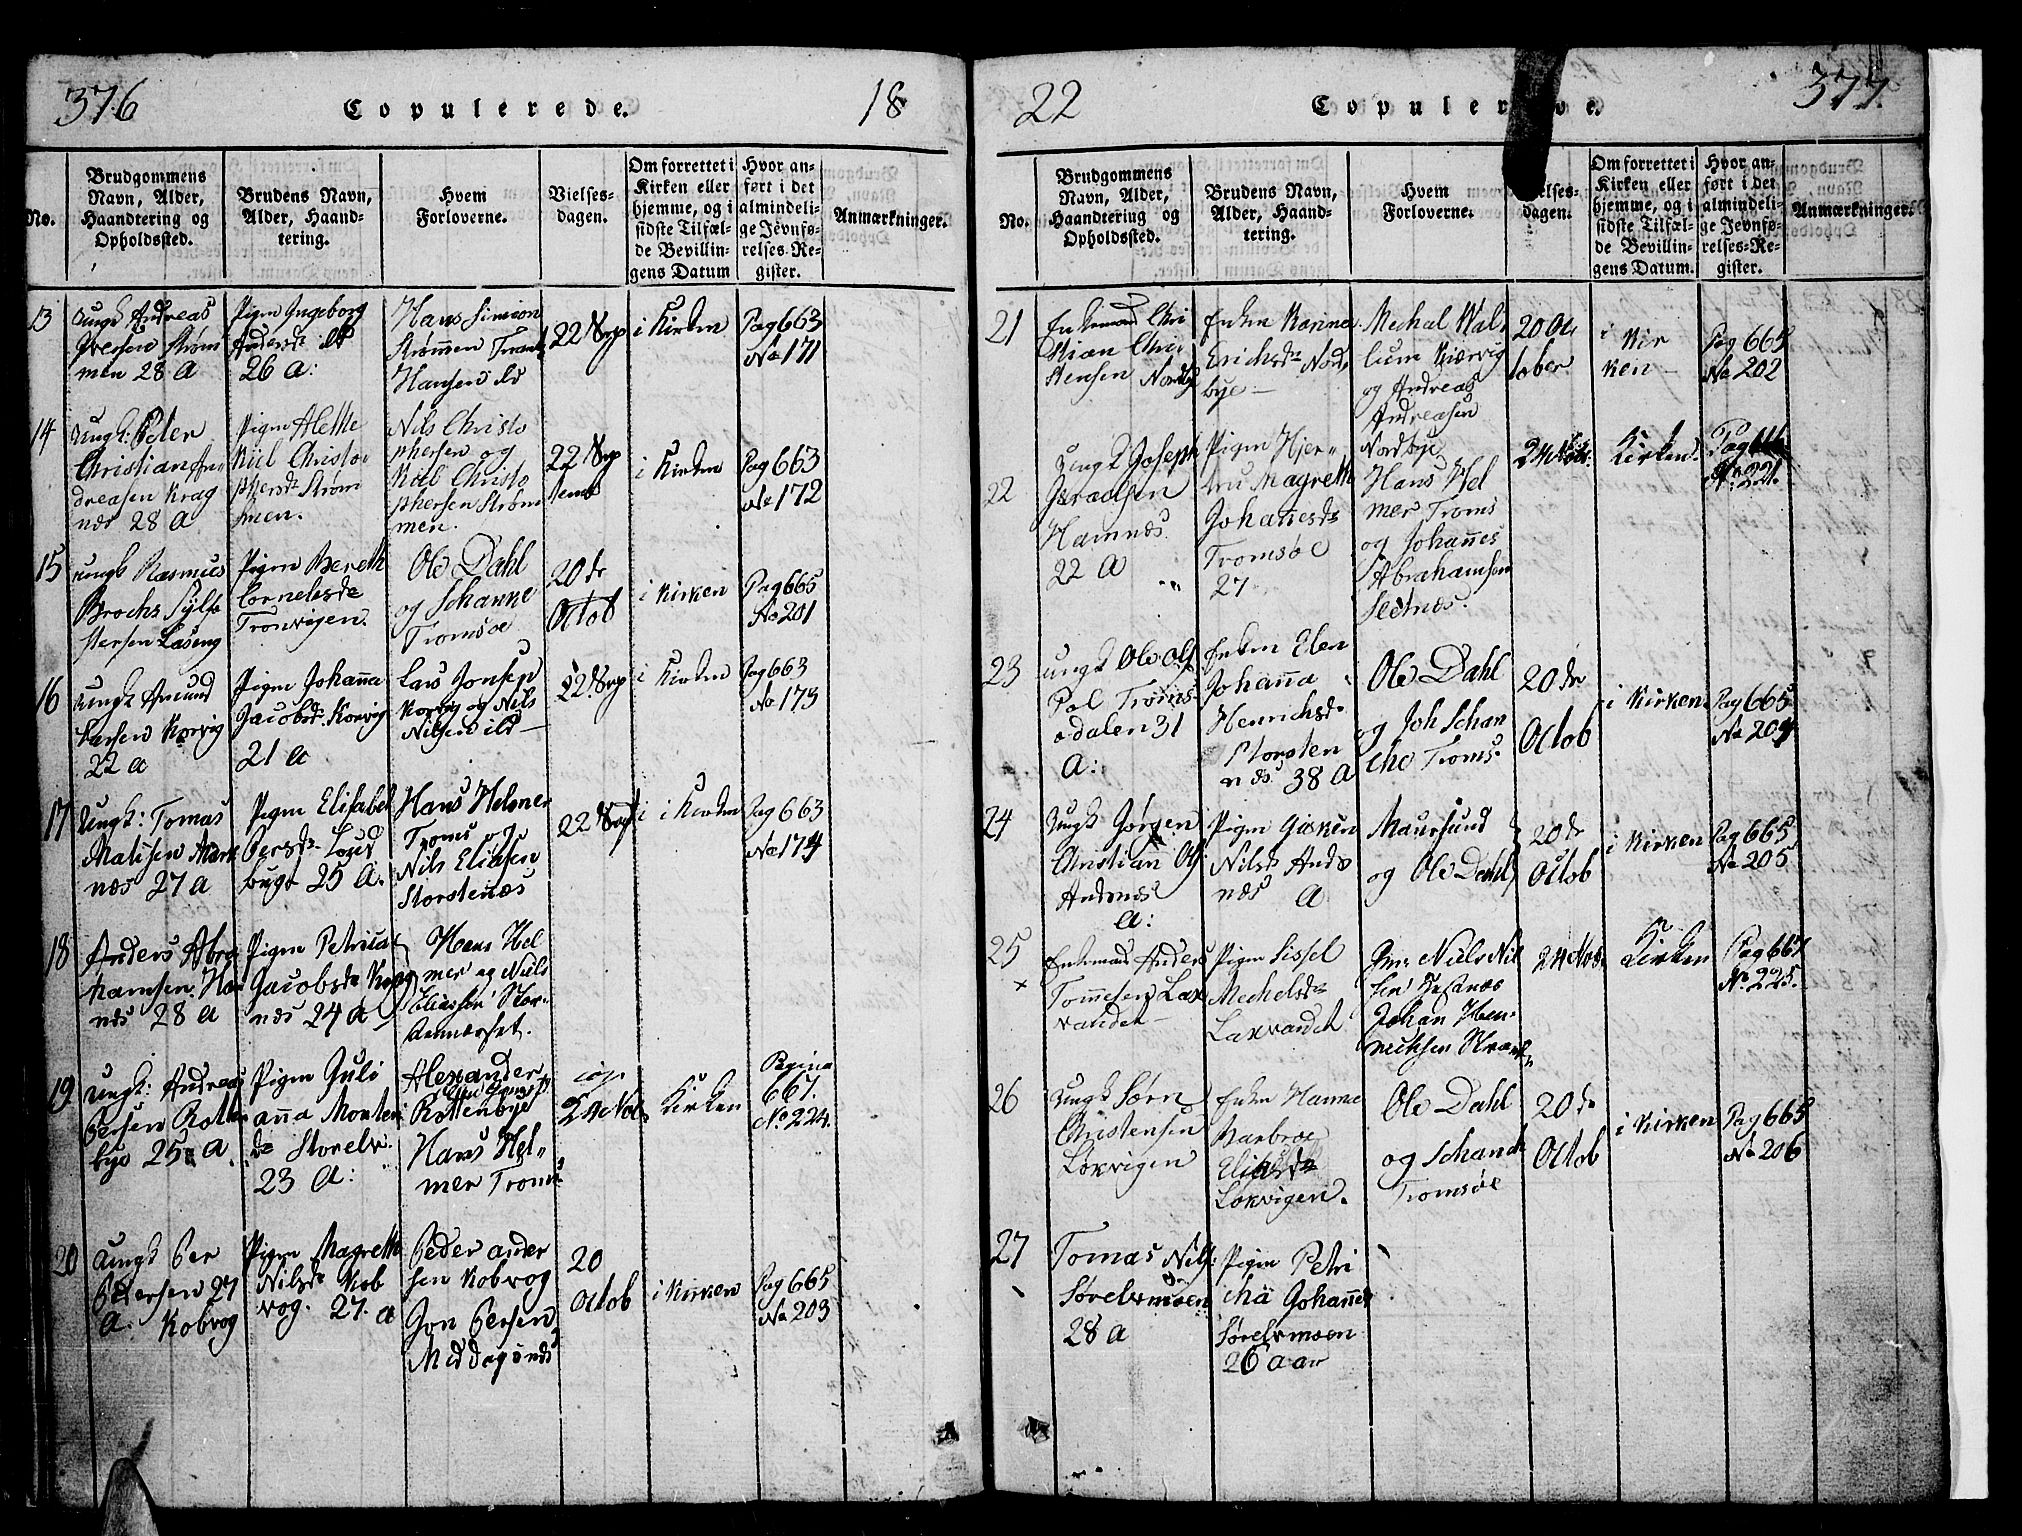 376
Copulerede.
18
No.
Brudgommens
Navn, Alder,
Haandtering og
Opholdssted.
Brudens Navn,
Alder, Haand-
tering.
Hvem
Forloverne.
Vielses-
dagen.
Om forrettet i
Kirken eller
hjemme, og i
sidste Tilfæl-
de Bevillin-
gens Datum
Hvor an-
ført i det
almindeli-
ge Jevnfø-
relses-Re-
gister.
Anmærkninger.
13
Ungk Andreas
Iversen Strøm
men 28 A
Pigen Ingeborg
Andersd
26 A:
Hans Simon
Strømmen
Hansen do
22 Sep
i Kirken
Pag 663
No 171
14
Ungk: Peder
Christian An
dreasen Krag
næs 28 A
Pigen Alethe
Kiil Christo
phersd Strøm
men.
Nils Christo
phersen og
Kiil Christo
phersen Strøm
men.
22 Sep
temb
i Kirken
Pag 663
No 172
15
Ungk Rasmus
Brochs Sylfe
stersen Laseng
Pigen Bereth
Cornelesde
Tronvigen.
Ole Dahl
og Schanke
Tromsøe
20 de
Octob
i Kirken
Pag 665
No 201
16
Ungk Amund
Larsen Korvig
22 a
Pigen Johanna
Jacobsd Korvig
21 a
Lars Jonsen
Korvig og Nils
Nilsen
22 Sep
i Kirken
Pag 663
No 173
17
Ungk: Tomas
Matisen Mark
næs 27 a
Pigen Elisabet
Persd
bugt 25 A.
Hans Helmer
Troms og
Nils Eliasen
Storstenæs
22 Sep
i Kirken
Pag 663
No 174
18
Anders Abra
hamsen
næs 28 a
Pigen Petrica
Jacobsde
næs 24 a
Hans Hel
mer og Niels
Eliassen
19
Ungk: Andreas
Persen Rotten
bye 25 A
Pigen Juli
anna Morten
de Storelv.
23 A:
Alexander
Rottenbye
Hans Hel
mer Troms
24 Nov
Kirken
Pagina
667.
No 224.
20
Ungk Per
Pedersen 27
A. Kobvog
Pigen Magreth
Nilsde Kob
vog. 27. a
Peder Ander
sen Kobvog
Jon Persen
20
Octob
i Kirken
Pag 665
No 203
22
Copulerede.
377
No.
Brudgommens
Navn, Alder,
Haandtering og
Opholdssted.
Brudens Navn,
Alder, Haand-
tering.
Hvem
Forloverne.
dagen.
Om forrettet i
Kirken eller
hjemme, og i
sidste Tilfæl-
de Bevillin-
gens Datum.
Hvor an-
ført i det
almindeli-
ge Jevnfø-
relses-Re-
gister.
Anmærkninger.
21
Enkemand Chri
stian Chri
stensen Nordby
Enken Karine
Erichsde Nord
bye
Mechal Wal
lum Kiærvig
og Andreas
Andreasen
Nordbye
20 Oc
tober
i Kir
ken
Pag 665
No 202
22
Ungk Joseph
Israelsen
Hamnæs
22 A
Pigen Hjer
tru Magreth
Johannesde
Tromsøe
27
Hans Hel
mer Troms
og Johannes
Abrahamsen
Selnæs.
24 Nobr.
Kirken
Pag
No. 221.
23
Ungk Ole Ols
Pol Troms
dalen 31
A:
Enken Elen
Johanna
Henrichsde
Storsten
næs. 38 A
Ole Dahl
og Joh Schan
che Troms.
20 de
Octob
i Kirken
Pag 665
No 204
24
Ungk Jørgen
Christian Ols
Andnæs
A:
Pigen Gisken
Nilsd Ands
næs A
Maursund
og Ole Dahl
20 de
Octob
i Kirken
Pag 665
No 205
25
Enkemand Anders
Tommesen Lax
vandet
Pigen Sissel
Mechelsde
Laxvandet
Niels Nil
sen
Johan Hen
richsen
24 Nobr
Kirken
Pag 667
No. 225.
26
Ungk Sørn
Christensen
Løxvigen
Enken Hanne
Barbroe
Eliasde
Løxvigen.
Ole Dahl
og Schanch
Tromsøe
20 de
Octob
i Kirken
Pag 665
No 206
27
Tomas Nils
Sørelvmoen
28 a
Pigen Petri
cha Johannes
Sørelvmoen
26 aar